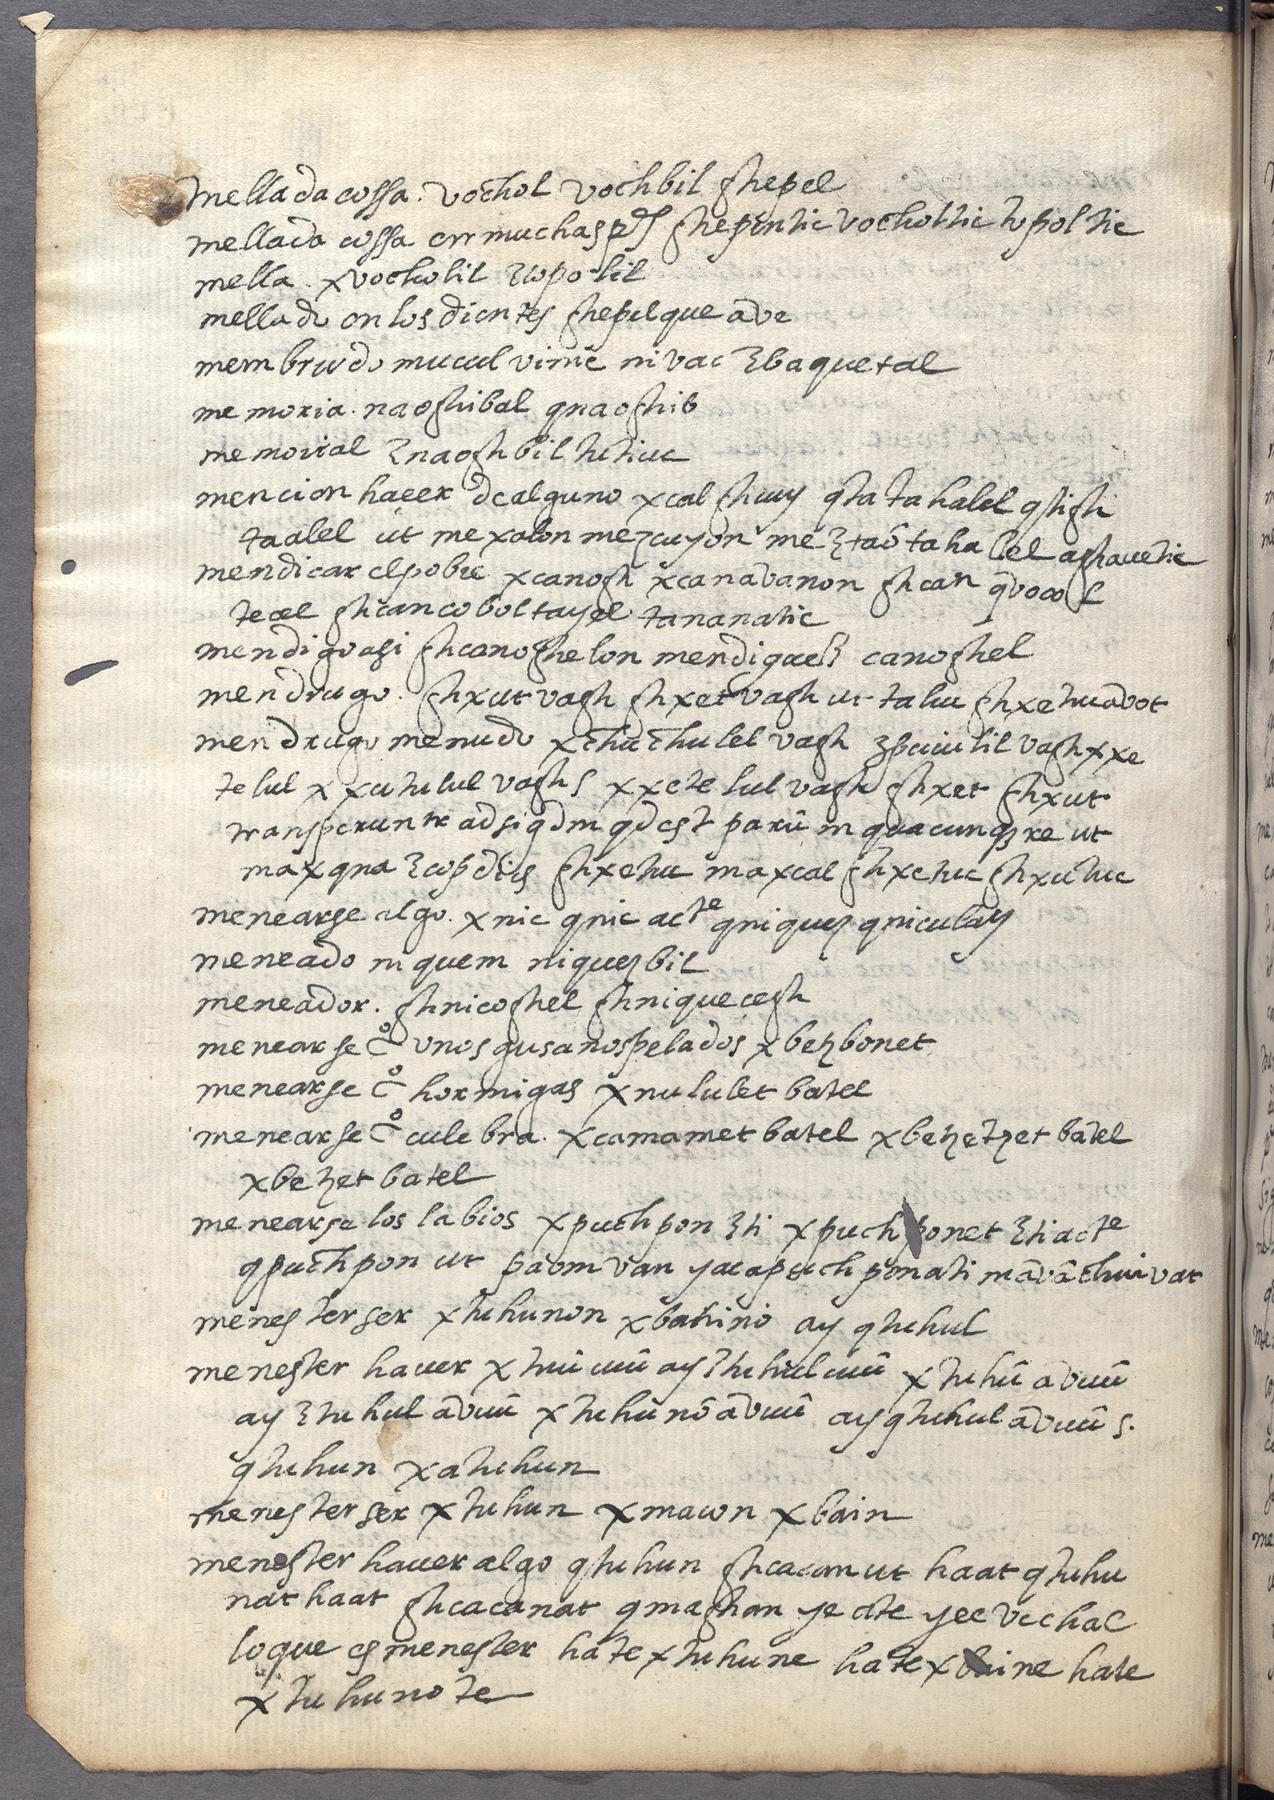 mellada cossa. vochol vochbil ghepel
mellada cossa en muchas ps ghepentic vochottic topoltic
mella. xvocholil ɛtopolil
mellado en los dientes ghepel que ave
membrudo mucul vinic nivac ɛbaquetal
memoria. naoghibal qnaoghib
memorial ɛnaoghbil tutiuc
mencion hacer de alguno xcal ghuuy qta ta halel qtigh
taalel ut mexalon mezcuyon me ɛtaô ta halel aghauetic
mendicar el pobre xcanogh xcanavanon ghcan qvocol
tecel ghcancoboltayel tananatic
mendigo asi ghcanoghelon mendiguez canoghel
mendrugo. ghxut vagh ghxet vagh ut taluc ghxetucavot
mendrugo menudo xchuchulel vagh ɛpuiulil vagh xxe
telul xxutulul vagh s xxetelul vagh ghxet ghxut
transferuntr ad sigdm qd est parû in quacunqꝫ re ut
maxqna ɛcop dius ghxetuc maxcal ghxetuc ghxutuc
menearse algo. xnic qnic acte qniquez qniculay
meneado niquem niquezbil
meneador. ghnicoghel ghniquecegh
menearse cº unos gusanos pelados xbetzbonet
menearse cº hormigas xnululet batel
menearse cº culebra. xcamamet batel xbetzetzet batel
xbetzet batel
menearse los labios xpuchpon ɛti xpuchponet ɛti acte
qpuchpon ut paom van yacapuchponati mâvâchuivat
menester ser xtuhunon xbatino ay qtuhul
menester hauer xtuû cuû ay ɛtuhul cuû xtuhû avuû
ay ɛtuhul âvuû xtuhû nô âvuû ay qtuhul âvuû s.
qtuhun xatuhun
menester ser xtuhun xmacon xbain
menester hauer algo qtuhun ghcacan ut haat qtuhu
nat haat ghcacanat qmaghan ye ote yee vechal
lo que es menester hate xtuhune hate xbaine hate
xtuhunote